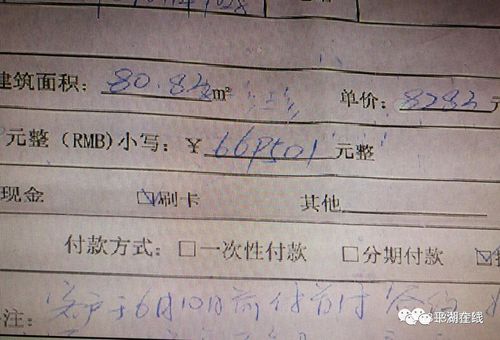 建筑面积: 80.82m² 单价: 8283元
元整（RMB)小写: ￥669501元整
现金 ☑刷卡 其他
付款方式: □一次性付款 □分期付款 ☑
注: 客户于6月10日前付首付 签约
平湖在线